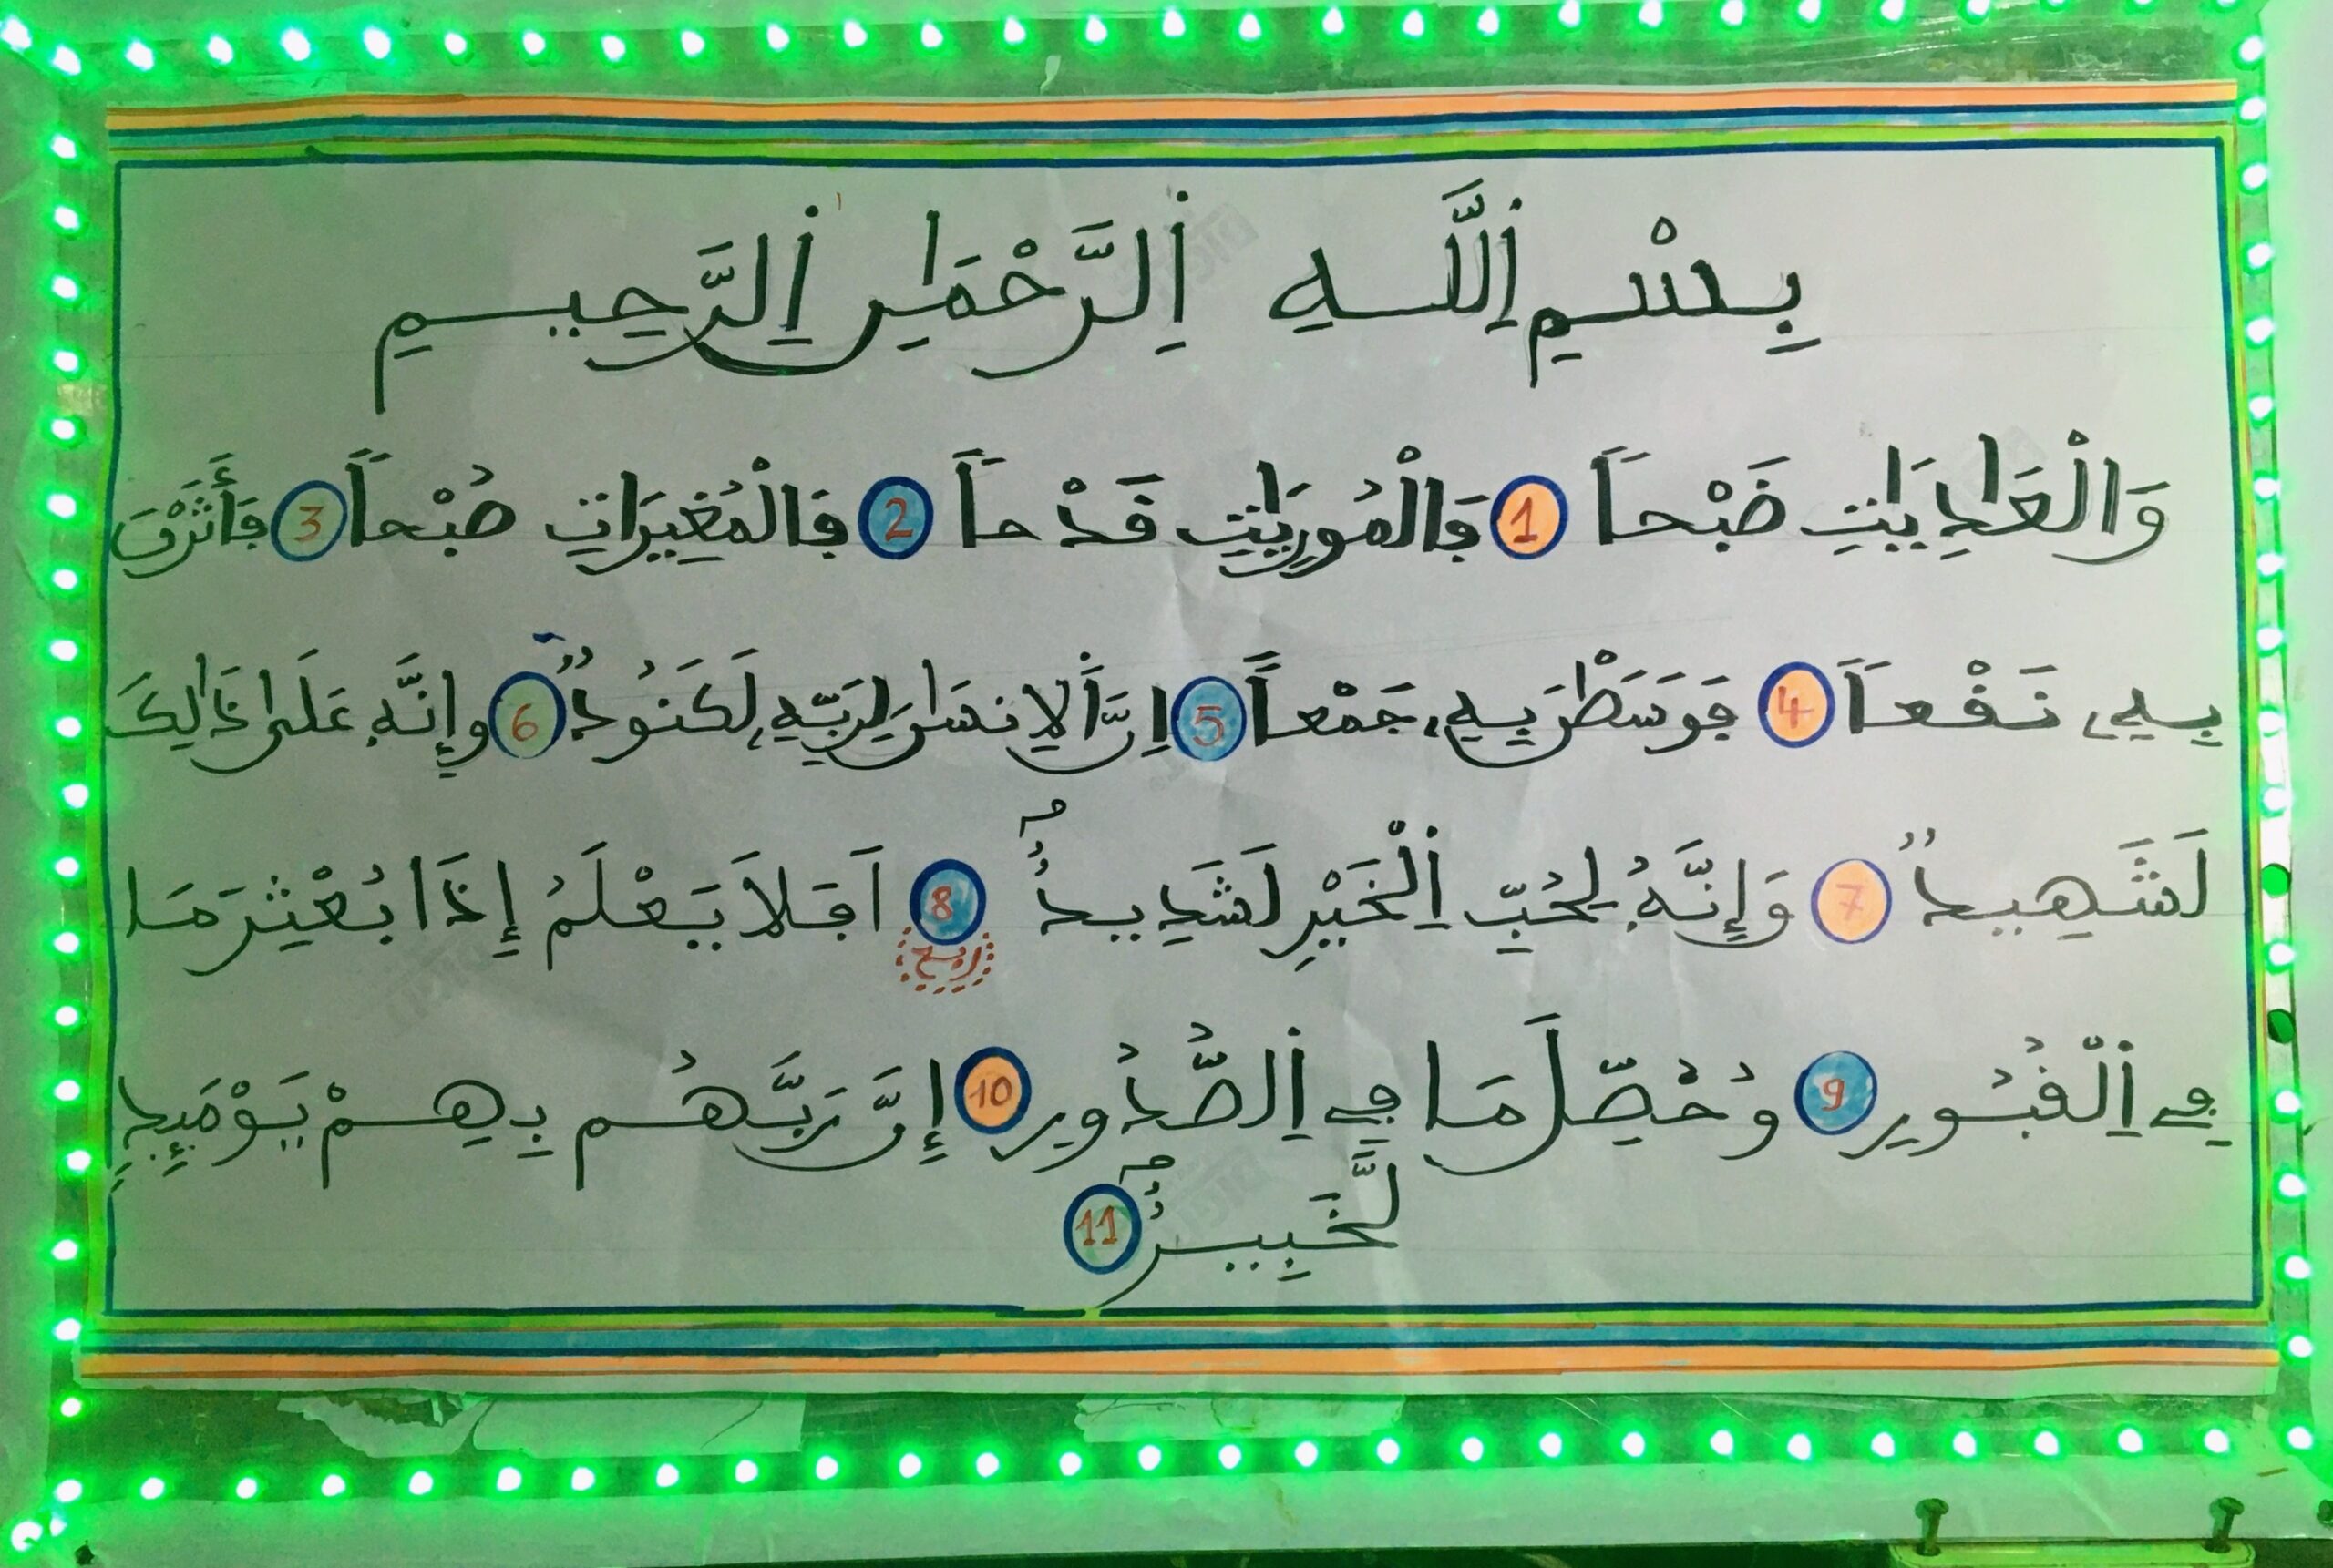 بِسْمِ اِ۬للَّهِ اِ۬لرَّحْمَٰنِ اِ۬لرَّحِيمِ
وَالْعَٰدِيَٰتِ ضَبْحاً 1 فَالْمُورِيَٰتِ قَدْحاً 2 فَالْمُغِيرَٰتِ صُبْحاً 3 فَأَثَرْنَ
بِهِۦ نَقْعاً 4 فَوَسَطْنَ بِهِۦ جَمْعاً 5 اِنَّ اَ۬لِانسَٰنَ لِرَبِّهِۦ لَكَنُودٞ 6 وإِنَّهُۥ عَلَىٰ ذَٰلِكَ
لَشَهِيدٞ 7 وَإِنَّهُۥ لِحُبِّ اِ۬لْخَيْرِ لَشَدِيدٌۢ 8 اَفَلَا يَعْلَمُ إِذَا بُعْثِرَ مَا
ربع
فِے اِ۬لْقُبُورِ 9 وَحُصِّلَ مَا فِے اِ۬لصُّدُورِ 10 إِنَّ رَبَّهُم بِهِمْ يَوْمَئِذٖ
لَّخَبِيرٌۢ 11